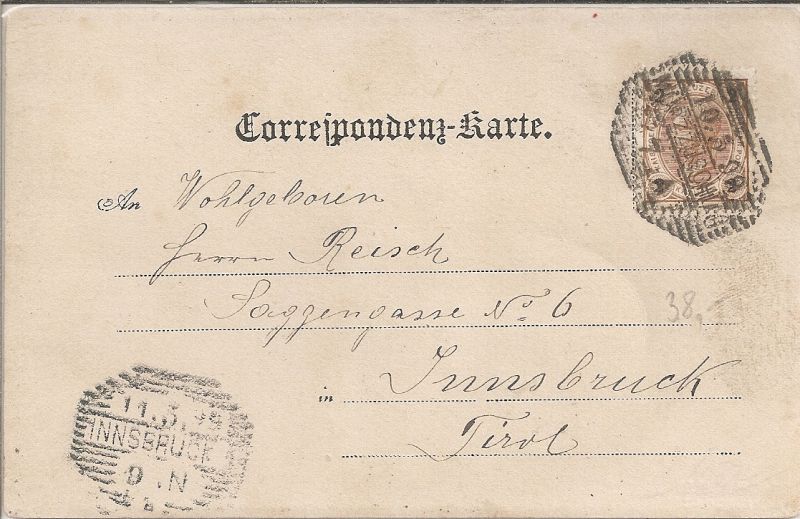 Correspondenz-Karte.
An Wohlgeboren
Herrn Reisch
Saggengasse No. 6
38,-
in Innsbruck
Tirol
11.5.99
INNSBRUCK
9 . N
10.5